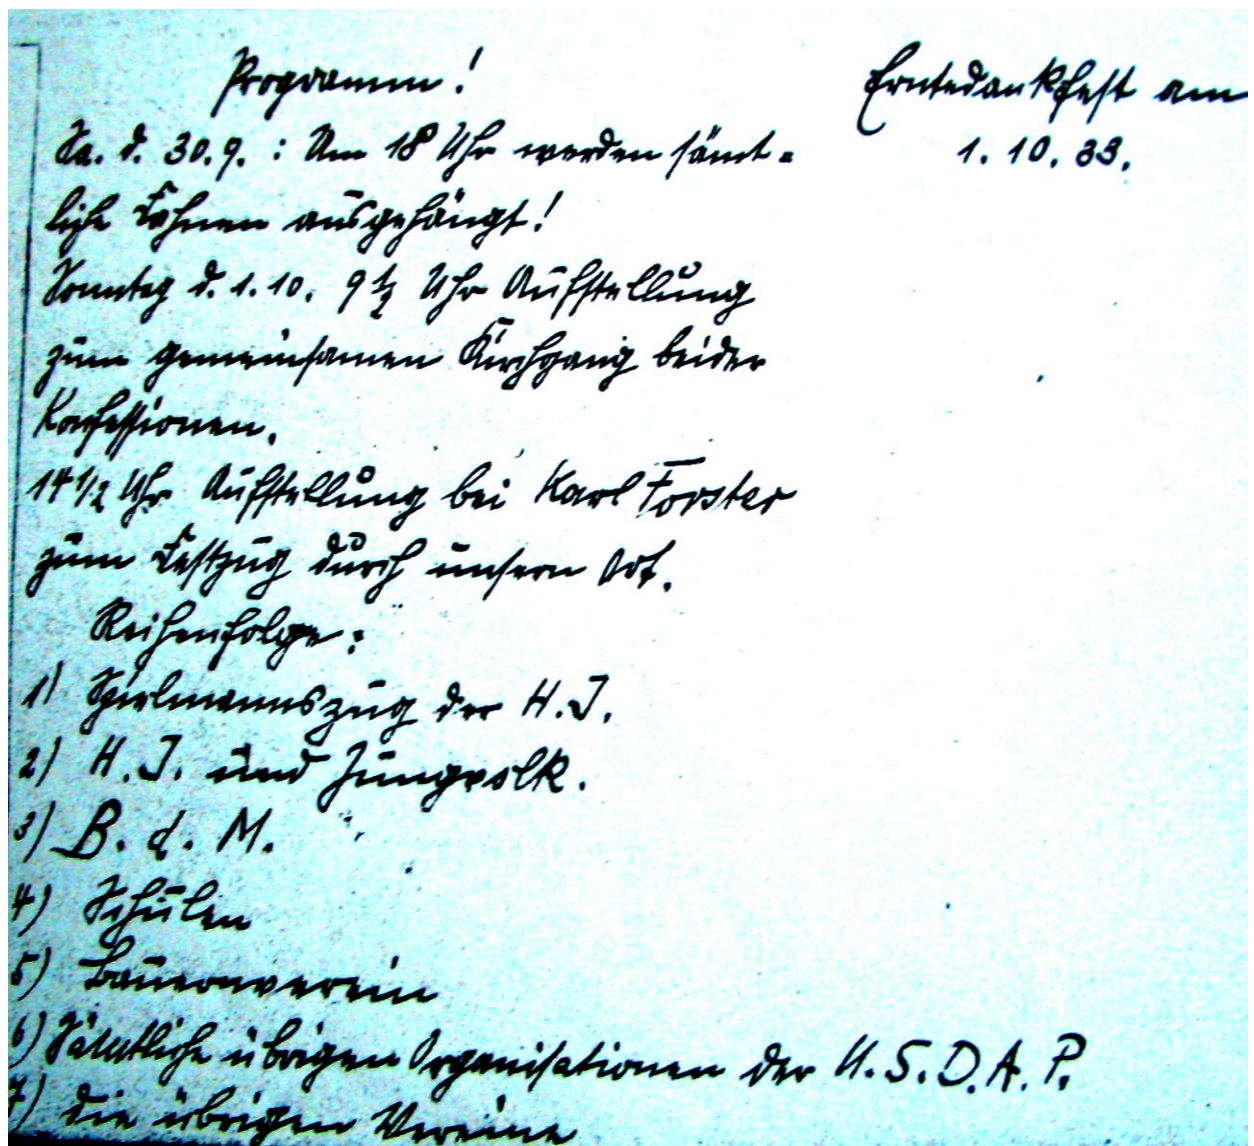 Programm!
Erntedankfest am
1. 10. 33.
Sa. d. 30.9. : Um 18 Uhr werden sämt-
liche Fahnen ausgehängt!
Sonntag d. 1. 10. 9 1/2 Uhr Aufstellung
zum gemeinsamen Kirchgang beider
Konfessionen.
14 1/2 Uhr Aufstellung bei Karl Forster
zum Festzug durch unsern Ort.
Reihenfolge:
1) Spielmannszug der H.J.
2) H.J. und Jungvolk.
3) B. d. M.
4) Schulen
5) Bauernverein
6) Sämtliche übrigen Organisationen der N.S.D.A.P.
7) die übrigen Vereine